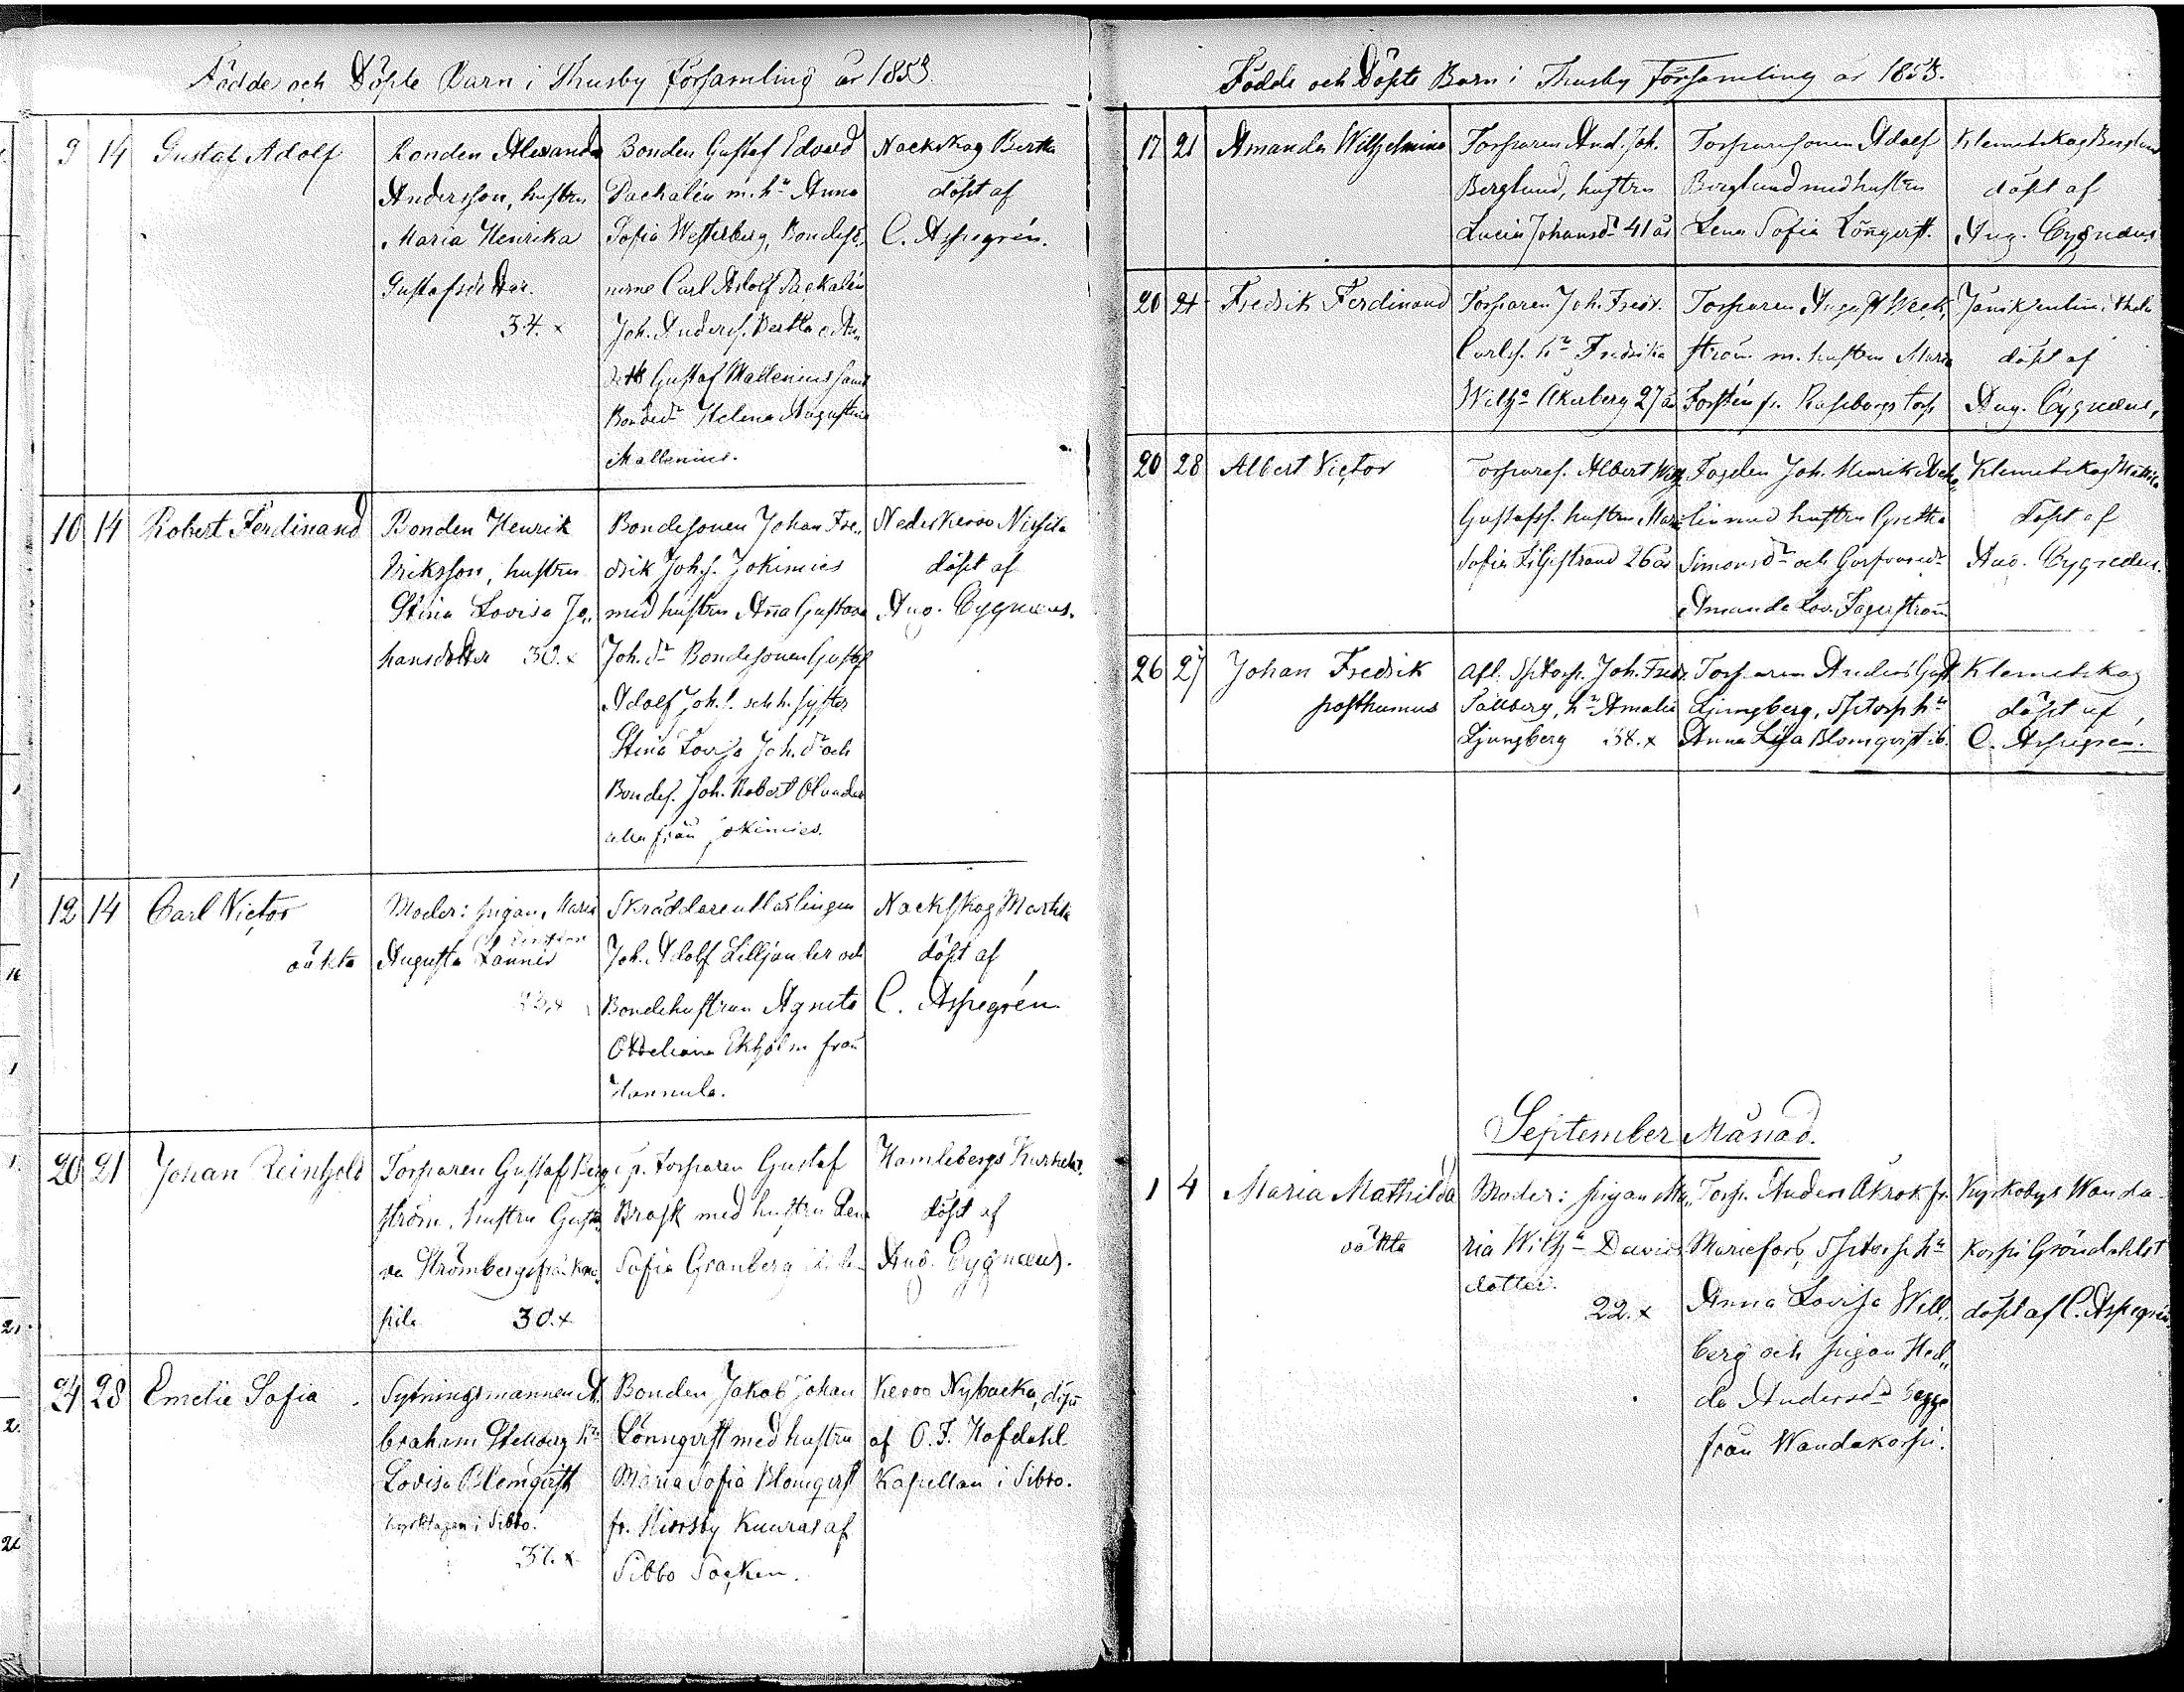 Födde och Döpte Barn i Thusby Församling år 1853
9 14 Gustaf Adolf
Bonden Alexander
Andersson, hustru
Maria Henrika
Gustafsdotter.
34. x
Bonden Gustaf Edvard
Packalén m. hu Anna
Sofia Westerberg, Bondesö-
nerne Carl Adolf Packalén
Joh. Anders. Bertla
Gustaf Mallenius samt
Bondedr Helena Augustina
Mallenius.
Nackskog Bertla
döpt af
C. Aspegrén.
10 14 Robert Ferdinand
Bonden Henrik
Eriksson, hustru
Stina Lovisa Jo„
hansdotter 30. x
Bondesonen Johan Fre„
drik Johs. Jokimies
med hustru Anna Gustava
Joh. dr Bondesonen Gustaf
Adolf Joh. s. och h. syster
Stina Lovisa Joh. dr och
Bondes. Joh. Robert Olander
alla från Jokimies.
Nederkervo Nissila
döpt af
Aug. Cygnæus.
12 14 Carl Victor
oäkta
Moder: pigan, Maria
Augusta Lannér
Skräddareutlärlingen
Joh. Adolf Lilljander och
Bondehustrun Agneta
Otteliana Ekholm från
Hannula.
Nackskog Marttila
döpt af
C. Aspegrén
20 21 Johan Reinhold
Torparen Gustaf Berg„
ström, hustru Gusta„
va Strömberg från
30. x
Torparen Gustaf
Brask med hustru Lena
Sofia Granberg
Hamlebergs
döpt af
Aug. Cygnæus.
24 28 Emelie Sofia
Sytningsmannen A„
braham Stenberg hu
Lovisa Blomqvist
kyrktagen i Sibbo.
37. x
Bonden Jakob Johan
Lönnqvist med hustru
Maria Sofia Blomqvist
fr. Hirvsby Kuuras af
Sibbo Socken.
Kervo Nybacka, döpt
af O. F. Hofdahl
Kapellan i Sibbo.
Födde och Döpte Barn i Thusby Församling år 1853.
17 21 Amanda Wilhelmina
Torparen And. Joh.
Berglund, hustru
Lucia Johansdr 41 år
Torparesonen Adolf
Berglund med hustru
Lena Sofia Lönnqvist.
Klemetskog Berglund
döpt af
Aug. Cygnæus
20 21 Fredrik Ferdinand
Torparen Joh. Fredr.
Carls. hu Fredrika
Wilha Åkerberg 27 år
Torparen August Beck„
ström m. hustru Maria
Forstén fr. Ruseborgs torp
döpt af
Aug. Cygnæus,
20 28 Albert Victor
Torpares. Albert Wilh.
Gustafss. hustru Maria
Sofia Liljestrand 26 år
Fogden Joh. Henrik
med hustru Gretha
Simonsdr och
Amanda Lov. Fagerström
Klemetskog Mattila
döpt af
Aug. Cygnæus.
26 27 Johan Fredrik
posthumus
Afl. Sptorp. Joh. Fredr.
Sallberg, hu Amalia
Ljungberg 38. x
Torparen Anders Gust.
Ljungberg, Sptorp hu
Anna Lisa Blomqvist ib.
Klemetskog
döpt af
C. Aspegrén.
September Månad.
1 4 Maria Mathilda
oäkta
Moder: pigan Ma„
ria Wilha Davids
dotter.
22. x
Torp. Anders Åkrok fr.
Mariefors, Sptorp hu
Anna Lovisa Will„
berg och pigan Hed„
da Andersdr begge
från Wandakorpi.
Kyrkobys Wanda-
korpi Gröndahlst
döpt af C. Aspegrén.